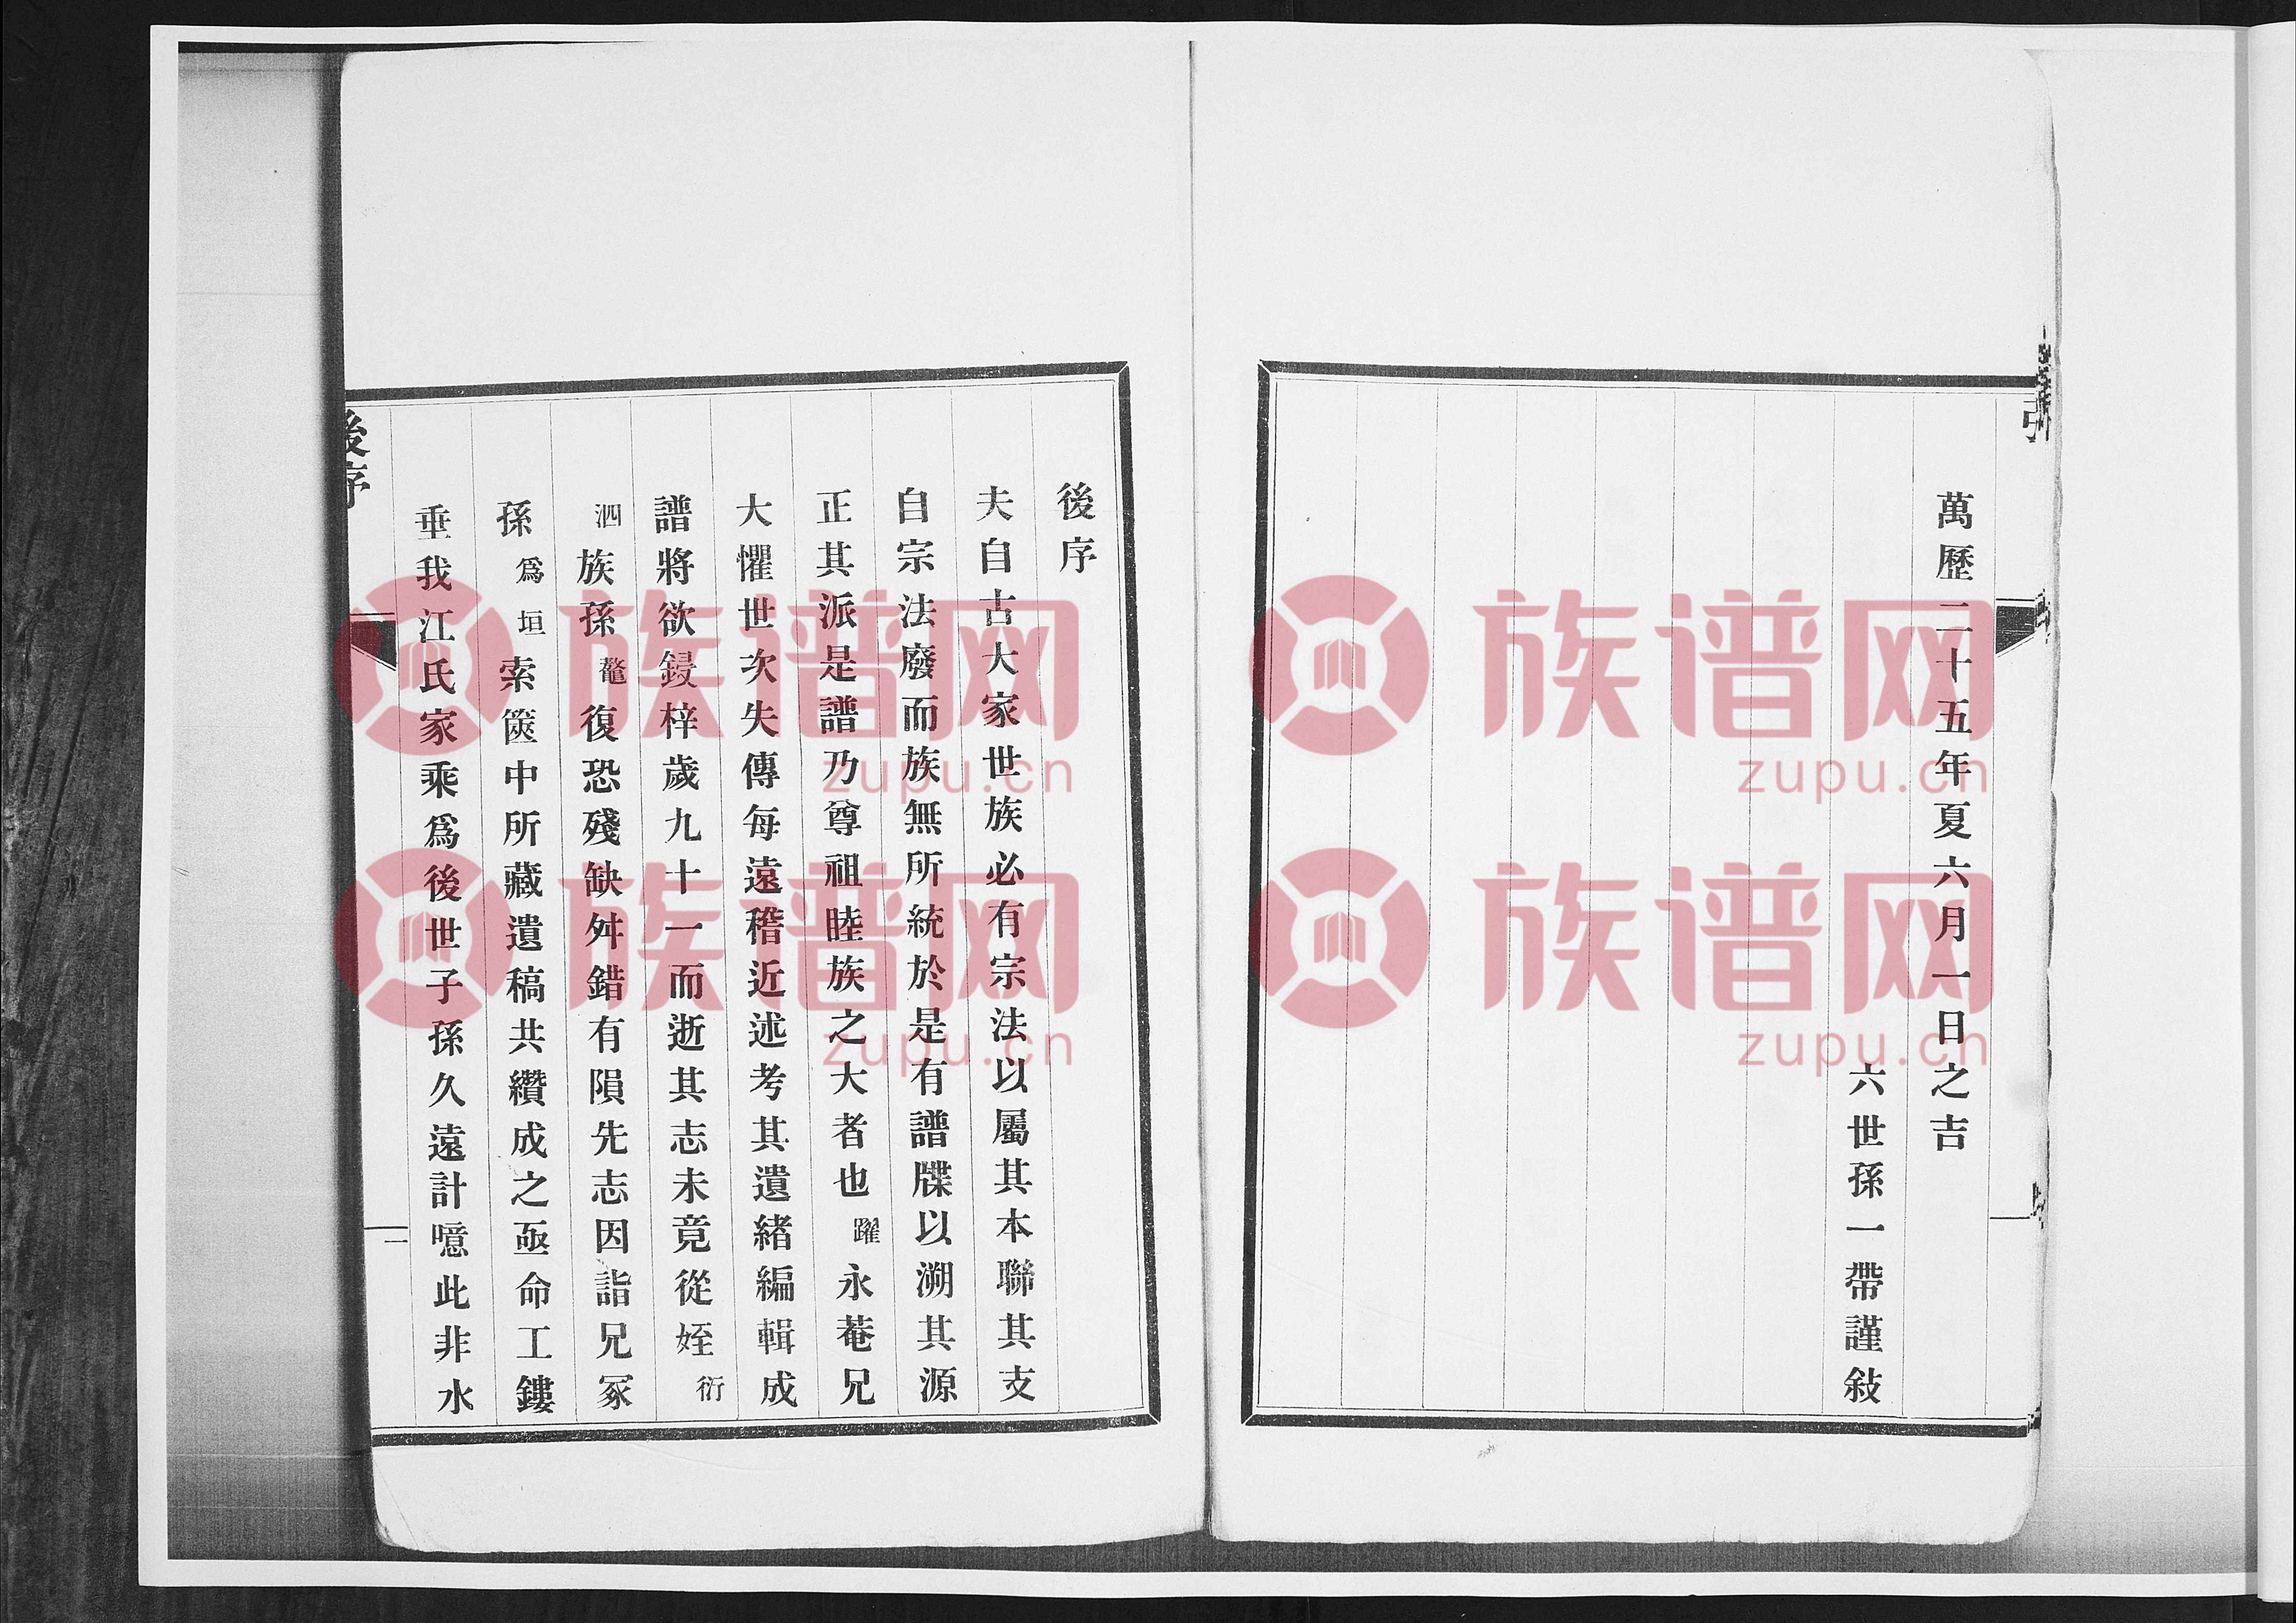 萬歷二十五年夏六月一日之吉
六世孫一帶謹敍
後序
夫自古大家世族必有宗法以屬其本聯其支
自宗法廢而族無所統於是有譜牒以溯其源
正其派是譜乃尊祖睦族之大者也躍永菴兄
大懼世次失傳每遠稽近述考其遺緒編輯成
譜將欲鋟梓歲九十一而逝其志未竟從姪衍
泗族孫鼇復恐殘缺舛錯有隕先志因詣兄冢
孫爲垣索篋中所藏遺稿共纘成之亟命工鏤
垂我江氏家乘爲後世子孫久遠計噫此非水
後序
一
族谱网
zupu.cn
族谱网
zupu.cn
族谱网
zupu.cn
族谱网
zupu.cn